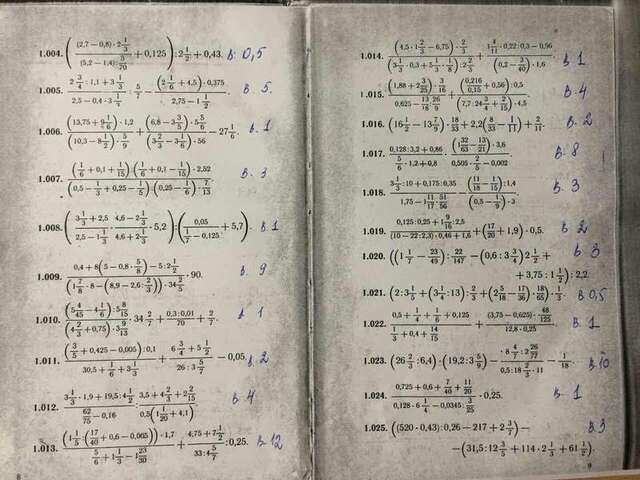 1.004. (((2,7 − 0,8) · 2 1/3) / ((5,2 − 1,4) : 3/70) + 0,125) : 2 1/2 + 0,43. В: 0,5
1.005. (2 3/4 : 1,1 + 3 1/3) / (2,5 − 0,4 · 3 1/3) : 5/7 − ((2 1/6 + 4,5) · 0,375) / (2,75 − 1 1/2). В. 5.
1.006. ((13,75 + 9 1/6) · 1,2) / ((10,3 − 8 1/2) · 5/9) + ((6,8 − 3 3/5) · 5 5/6) / ((3 2/3 − 3 1/6) · 56) − 27 1/6. В. 1
1.007. ((1/6 + 0,1 + 1/15) : (1/6 + 0,1 − 1/15) · 2,52) / ((0,5 − 1/3 + 0,25 − 1/5) : (0,25 − 1/6) · 7/13) В. 3
1.008. ((3 1/3 + 2,5) / (2,5 − 1 1/3) · (4,6 − 2 1/3) / (4,6 + 2 1/3) · 5,2) : (0,05 / (1/7 − 0,125) + 5,7). В. 1
1.009. (0,4 + 8 (5 − 0,8 · 5/8) − 5 : 2 1/2) / ((1 7/8 · 8 − (8,9 − 2,6 : 2/3)) · 34 2/5) · 90. В. 9
1.010. ((5 4/45 − 4 1/6) : 5 8/15) / ((4 2/3 + 0,75) · 3 9/13) · 34 2/7 + (0,3 : 0,01) / 70 + 2/7. В. 1
1.011. ((3/5 + 0,425 − 0,005) : 0,1) / (30,5 + 1/6 + 3 1/3) + (6 3/4 + 5 1/2) / (26 : 3 5/7) − 0,05. В. 2
1.012. (3 1/3 · 1,9 + 19,5 : 4 1/2) / (62/75 − 0,16) : (3,5 + 4 2/3 + 2 2/15) / (0,5 (1 1/20 + 4,1)) В. 4
1.013. ((1 1/5 : (17/40 + 0,6 − 0,005)) · 1,7) / (5/6 + 1 1/3 − 1 23/30) + (4,75 + 7 1/2) / (33 : 4 5/7) : 0,25. В. 12
8
1.014. ((4,5 · 1 2/3 − 6,75) · 2/3) / ((3 1/3 · 0,3 + 5 1/3 · 1/8) : 2 2/3) + (1 4/11 · 0,22 : 0,3 − 0,96) / ((0,2 − 3/40) · 1,6) В. 1
1.015. ((1,88 + 2 3/25) · 3/16) / (0,625 − 13/18 : 26/9) + ((0,216/0,15 + 0,56) : 0,5) / ((7,7 : 24 3/4 + 2/15) · 4,5). В. 4
1.016. (16 1/2 − 13 7/9) · 18/33 + 2,2 (8/33 − 1/11) + 2/11. В. 2
1.017. (0,128 : 3,2 + 0,86) / (5/6 · 1,2 + 0,8) · ((1 32/63 − 13/21) · 3,6) / (0,505 · 2/5 − 0,002). В. 8
1.018. (3 1/3 : 10 + 0,175 : 0,35) / (1,75 − 1 11/17 · 51/56) − ((11/18 − 1/15) : 1,4) / ((0,5 − 1/9) · 3). В. 3
1.019. (0,125 : 0,25 + 1 9/16 : 2,5) / ((10 − 22 : 2,3) · 0,46 + 1,6) + (17/20 + 1,9) · 0,5. В. 2
1.020. ((1 1/7 − 23/49) : 22/147 − (0,6 : 3 3/4) 2 1/2 + В 3
+ 3,75 : 1 1/2) : 2,2.
1.021. (2 : 3 1/5 + (3 1/4 : 13) : 2/3 + (2 5/18 − 17/36) · 18/65) · 1/3. В. 0,5
1.022. (0,5 + 1/4 + 1/6 + 0,125) / (1/3 + 0,4 + 14/15) + ((3,75 − 0,625) · 48/125) / (12,8 · 0,25). В. 1
1.023. (26 2/3 : 6,4) · (19,2 : 3 5/9) − (8 4/7 : 2 26/77) / (0,5 : 18 2/3 · 11) − 1/18. В. 10
1.024. (0,725 + 0,6 + 7/40 + 11/20) / (0,128 · 6 1/4 − 0,0345 : 3/25) · 0,25. В. 1
1.025. ((520 · 0,43) : 0,26 − 217 + 2 3/7) − В. 3
− (31,5 : 12 3/5 + 114 · 2 1/3 + 61 1/2).
9